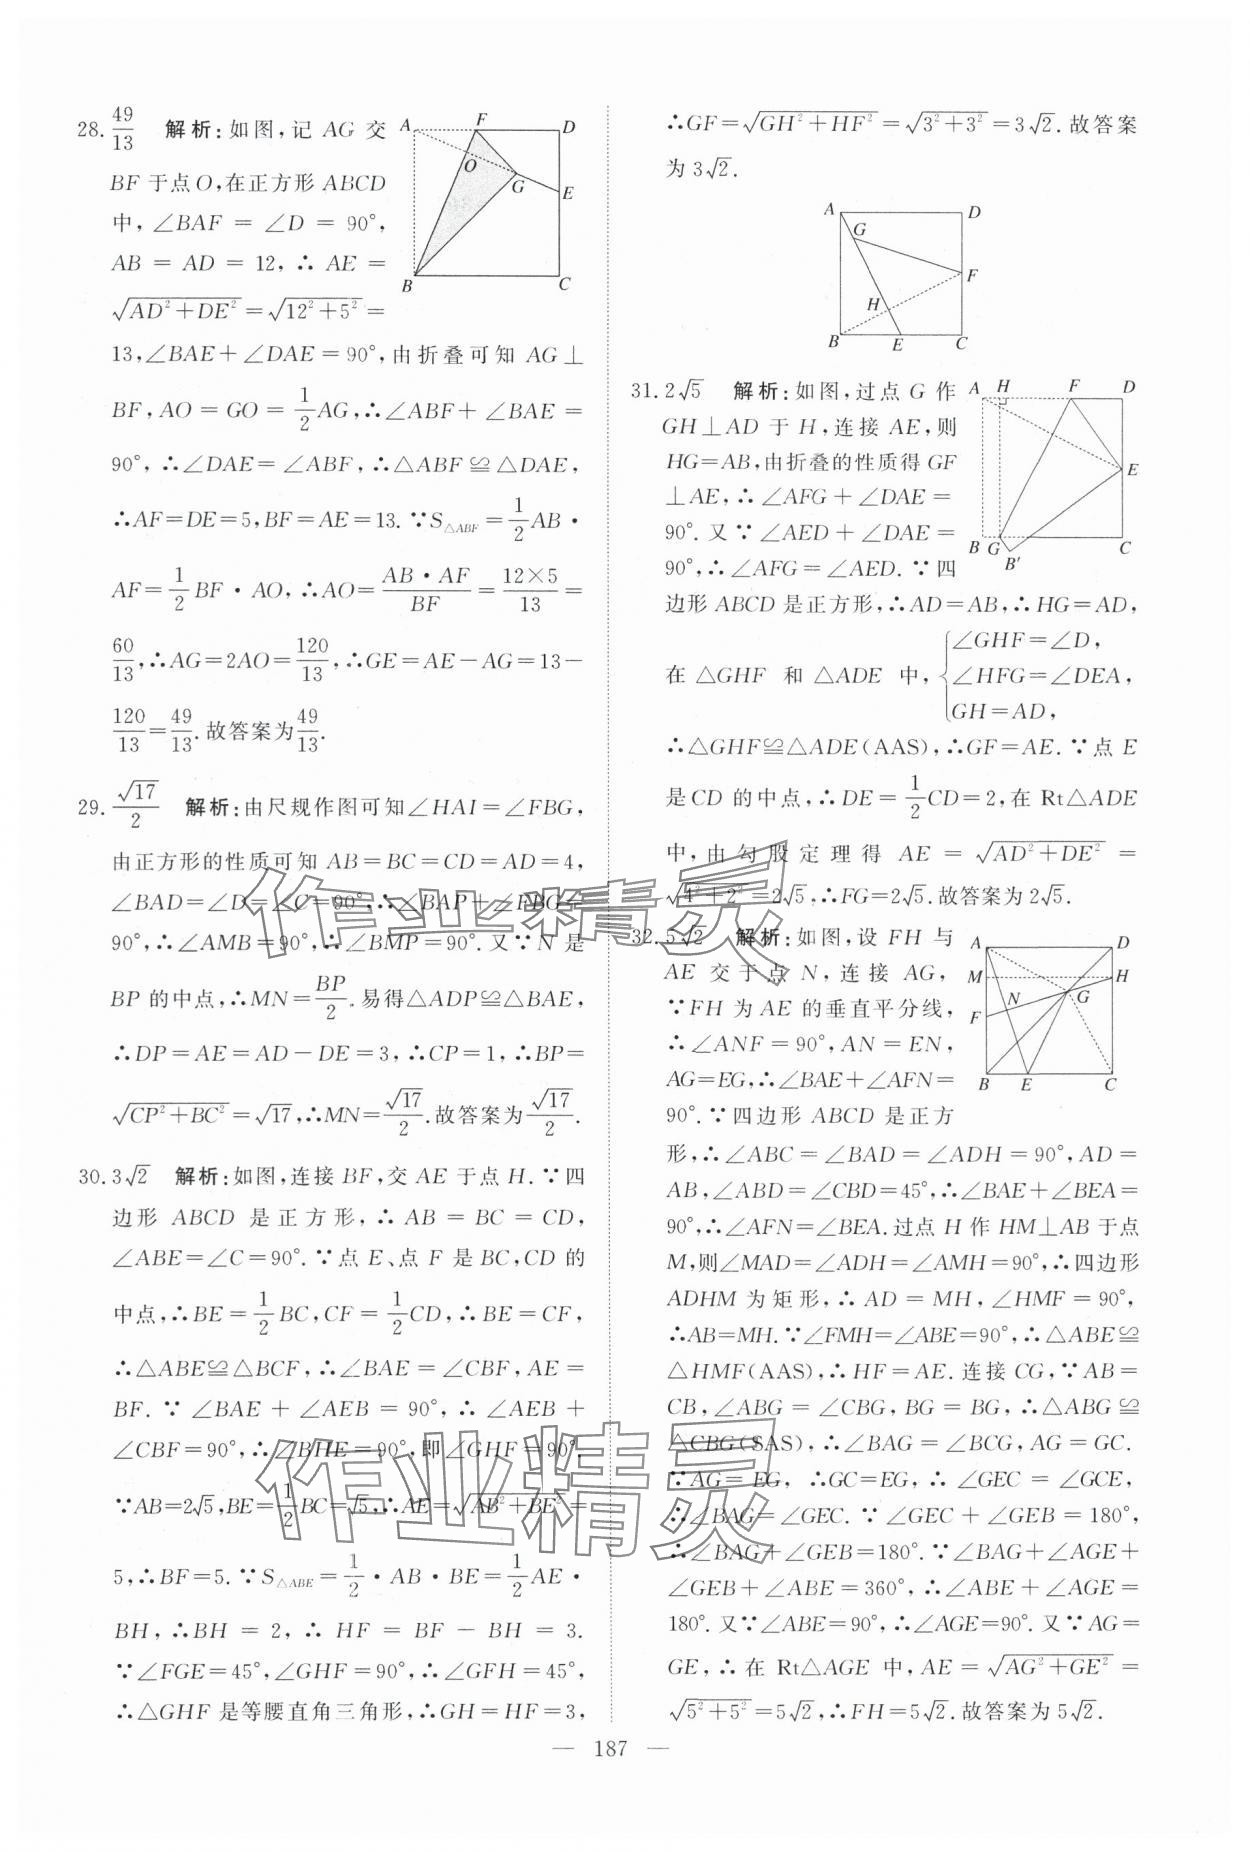 28. 49/13 解析:如图,记 AG 交
BF 于点O,在正方形 ABCD
中, ∠BAF = ∠D = 90°,
AB = AD = 12, ∴ AE =
√(AD²+DE²)=√(12²+5²)=
13,∠BAE+∠DAE=90°,由折叠可知 AG⊥
BF, AO = GO = 1/2 AG, ∴∠ABF+ ∠BAE =
90°, ∴∠DAE=∠ABF, ∴△ABF≌△DAE,
∴AF=DE=5,BF=AE=13. ∵S△ABF=1/2 AB·
AF=1/2 BF·AO, ∴AO=AB·AF/BF=12×5/13=
60/13,∴AG=2AO=120/13,∴GE=AE-AG=13-
120/13=49/13.故答案为49/13.
29. √17/2 解析:由尺规作图可知∠HAI=∠FBG,
由正方形的性质可知 AB=BC=CD=AD=4,
∠BAD=∠D=∠C=90°,∴∠BAP+∠FBG=
90°,∴∠AMB=90°,∴∠BMP=90°. 又∵N 是
BP 的中点,∴MN=BP/2.易得△ADP≌△BAE,
∴DP=AE=AD-DE=3,∴CP=1,∴BP=
√(CP²+BC²)=√17,∴MN=√17/2.故答案为√17/2.
30. 3√2 解析:如图,连接 BF,交 AE 于点 H. ∵四
边形 ABCD 是正方形, ∴ AB = BC = CD,
∠ABE=∠C=90°. ∵点 E、点 F 是 BC,CD 的
中点,∴BE=1/2 BC,CF=1/2 CD,∴BE=CF,
∴△ABE≌△BCF,∴∠BAE=∠CBF,AE=
BF. ∵ ∠BAE + ∠AEB = 90°, ∴ ∠AEB +
∠CBF=90°,∴∠BHE=90°,即∠GHF=90°.
∵AB=2√5,BE=1/2 BC=√5,∴AE=√(AB²+BE²)=
5,∴BF=5. ∵S△ABE=1/2·AB·BE=1/2 AE·
BH, ∴BH = 2, ∴ HF = BF - BH = 3.
∵∠FGE=45°,∠GHF=90°,∴∠GFH=45°,
∴△GHF是等腰直角三角形,∴GH=HF=3,
∴GF=√(GH²+HF²)=√(3²+3²)=3√2.故答案
为 3√2.
31. 2√5 解析:如图,过点 G 作
GH⊥AD 于 H,连接 AE,则
HG=AB,由折叠的性质得 GF
⊥AE,∴∠AFG+∠DAE=
90°. 又∵∠AED+∠DAE=
90°,∴∠AFG=∠AED. ∵四
边形 ABCD 是正方形,∴AD=AB,∴HG=AD,
在 △GHF 和 △ADE 中, { ∠GHF=∠D,
∠HFG=∠DEA,
GH=AD,
∴△GHF≌△ADE(AAS),∴GF=AE. ∵点 E
是CD 的中点,∴DE=1/2 CD=2,在 Rt△ADE
中,由勾股定理得 AE = √(AD²+DE²) =
√(4²+2²)=2√5,∴FG=2√5.故答案为2√5.
32. 5√2 解析:如图,设 FH 与
AE 交于点 N,连接 AG,
∵FH 为 AE 的垂直平分线,
∴∠ANF=90°,AN=EN,
AG=EG,∴∠BAE+∠AFN=
90°. ∵四边形 ABCD 是正方
形,∴∠ABC=∠BAD=∠ADH=90°,AD=
AB,∠ABD=∠CBD=45°,∴∠BAE+∠BEA=
90°,∴∠AFN=∠BEA. 过点 H 作 HM⊥AB 于点
M,则∠MAD=∠ADH=∠AMH=90°,∴四边形
ADHM 为矩形,∴ AD = MH,∠HMF = 90°,
∴AB=MH. ∵∠FMH=∠ABE=90°,∴△ABE≌
△HMF(AAS),∴HF=AE. 连接 CG,∵AB=
CB,∠ABG = ∠CBG, BG = BG, ∴△ABG≌
△CBG(SAS), ∴∠BAG = ∠BCG, AG = GC.
∵AG=EG, ∴GC=EG, ∴ ∠GEC = ∠GCE,
∴∠BAG=∠GEC. ∵∠GEC+∠GEB=180°,
∴∠BAG+∠GEB=180°. ∵∠BAG+∠AGE+
∠GEB+∠ABE=360°,∴∠ABE+∠AGE=
180°. 又∵∠ABE=90°,∴∠AGE=90°. 又∵AG=
GE, ∴ 在 Rt△AGE 中, AE = √(AG²+GE²) =
√(5²+5²)=5√2,∴FH=5√2.故答案为5√2.
A F D
O
G
E
B C
A D
G
F
H
B E C
A H F D
E
B G C
B′
A D
M H
N G
F
B E C
作业精灵
作业精灵
— 187 —